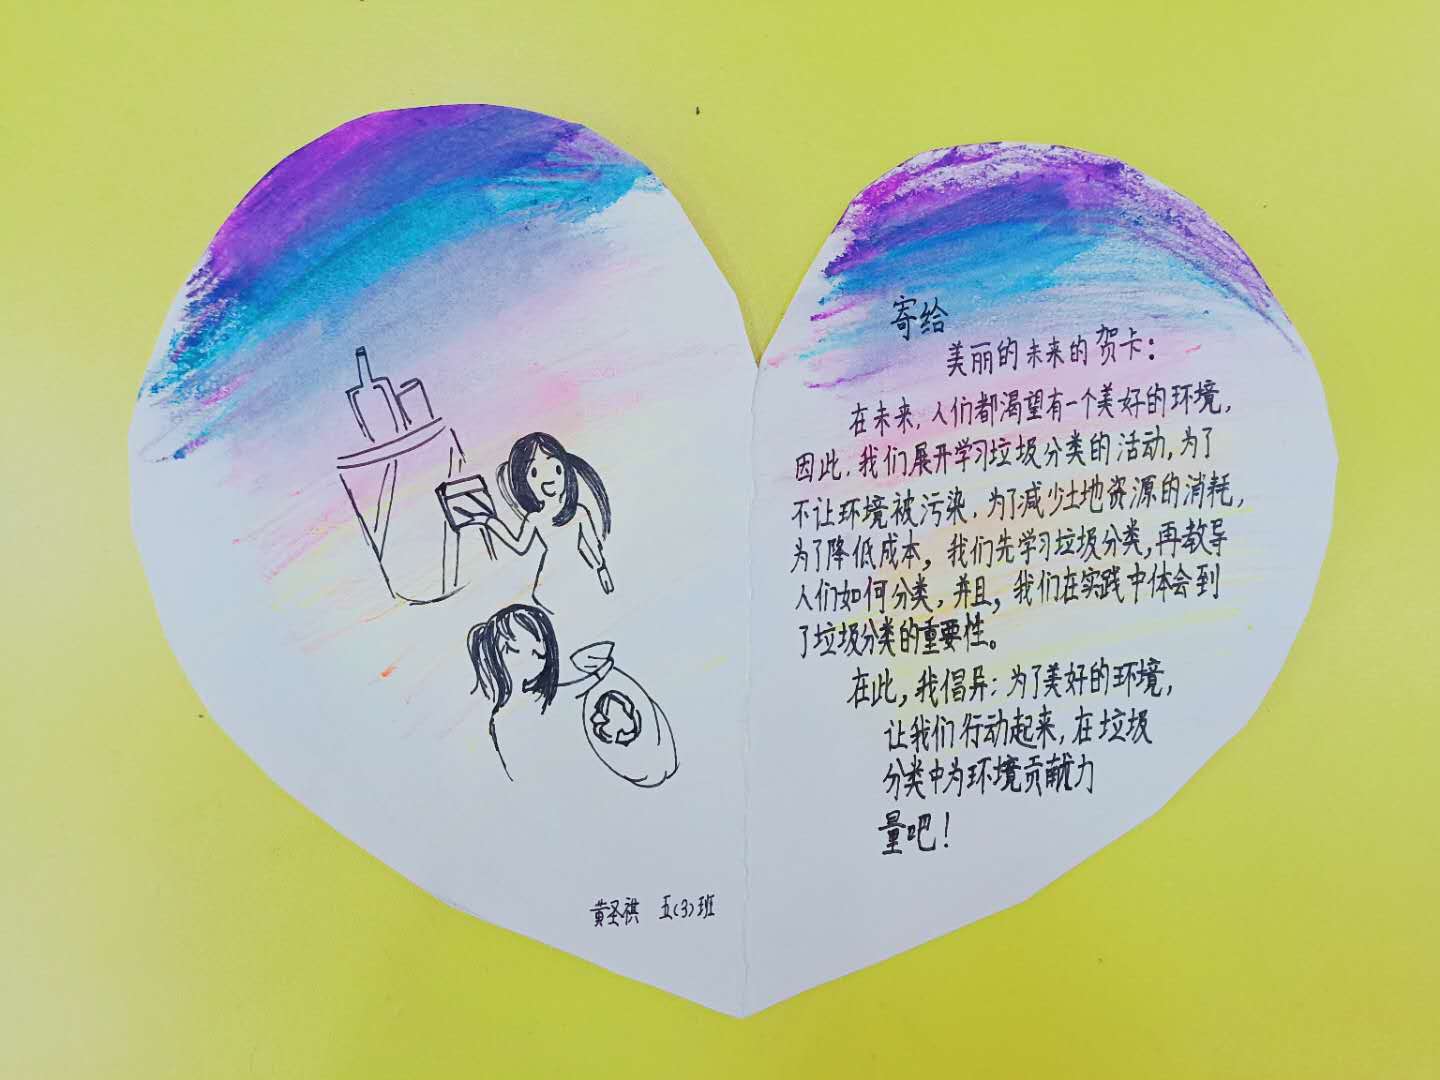 寄给
美丽的未来的贺卡：
在未来，人们都渴望有一个美好的环境，
因此，我们展开学习垃圾分类的活动，为了
不让环境被污染，为了减少土地资源的消耗，
为了降低成本，我们先学习垃圾分类，再教导
人们如何分类，并且，我们在实践中体会到
了垃圾分类的重要性。
在此，我倡异：为了美好的环境，
让我们行动起来，在垃圾
分类中为环境贡献力
量吧！
黄圣祺 五(3)班